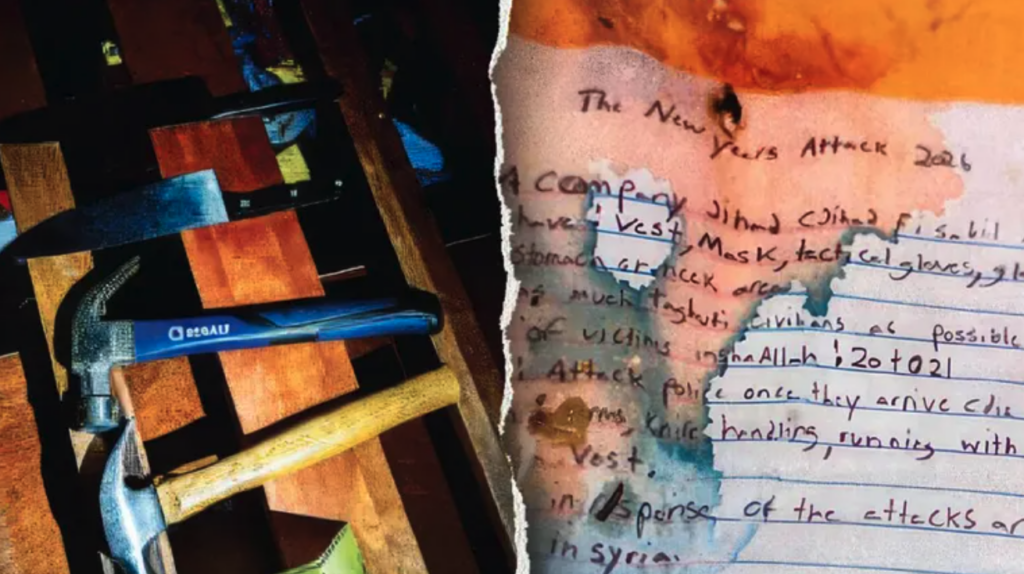 The New Years Attack 2026
A company Jihad (Jihad fi sabil
have : Vest, Mask, tactical gloves,
stomach or neck area
much taghuti civilians as possible
of victims inshaAllah : 20 to 21
: Attack police once they arrive
knife handling, running with
Vest.
in of the attacks
in syria.